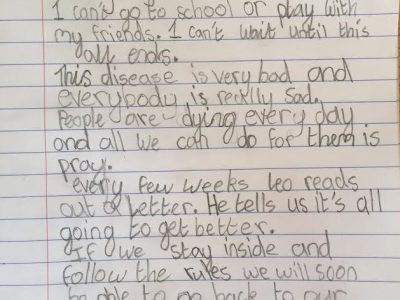 I can't go to school or play with
my friends. I can't wait until this
all ends.
This disease is very bad and
everybody is really sad.
People are dying every day
and all we can do for them is
pray.
every few weeks leo reads
out a letter. He tells us it's all
going to get better.
If we stay inside and
follow the rules we will soon
be able to go back to our